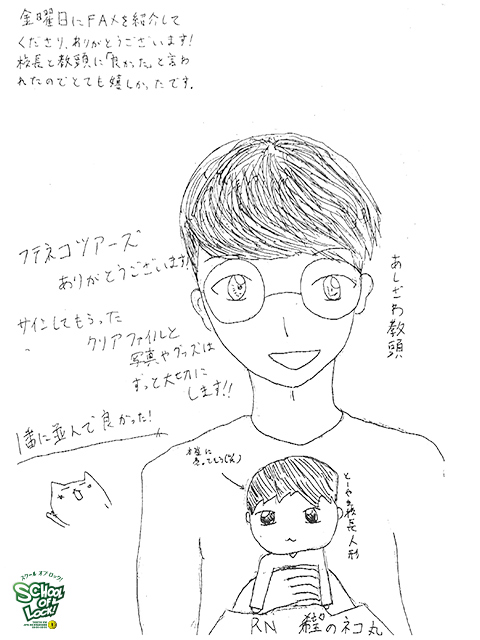 金曜日にFAXを紹介して
くださり、ありがとうございます!
校長と教頭に「良かった」と言わ
れたのでとても嬉しかったです。
フテネコツアーズ
ありがとうございます!
サインしてもらった
クリアファイルと
写真やグッズは
ずっと大切に
します!!
1番に並んで良かった!
あしざわ教頭
本当に
売ってしょう(笑)
とーやま校長人形
RN のネコ丸
スクール オブ ロック!
SCHOOL
OF
LOCK!